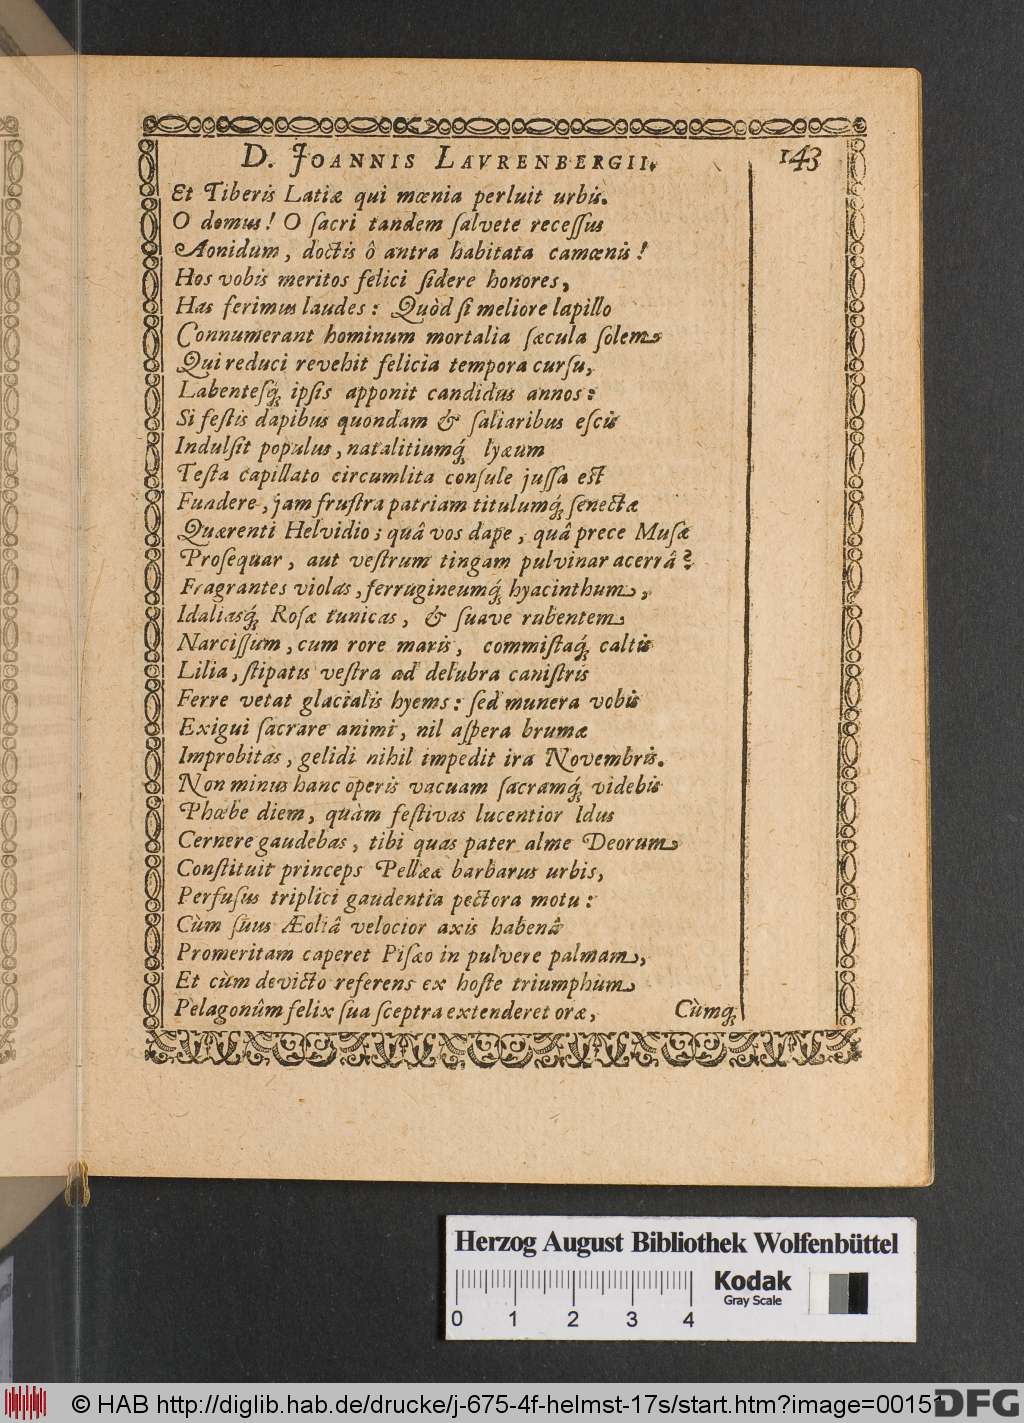 D. JOANNIS LAVRENBERGII. 143
Et Tiberis Latiæ qui mœnia perluit urbis.
O domus! O ſacri tandem ſalvete receſſus
Aonidum, doctis ô antra habitata camœnis!
Hos vobis meritos felici ſidere honores,
Has ferimus laudes: Quòd ſi meliore lapillo
Connumerant hominum mortalia ſæcula ſolem
Qui reduci revehit felicia tempora curſu,
Labenteſq́; ipſis apponit candidus annos:
Si feſtis dapibus quondam & ſaliaribus eſcis
Indulſit populus, natalitiumq́; lyæum
Teſta capillato circumlita conſule juſſa eſt
Fundere, jam fruſtra patriam titulumq́; ſenectæ
Quærenti Helvidio; quâ vos dape, quâ prece Muſæ
Proſequar, aut veſtrum tingam pulvinar acerrâ?
Fragrantes violas, ferrugineumq́; hyacinthum,
Idaliasq́; Roſæ tunicas, & ſuave rubentem
Narciſſum, cum rore maris, commiſtaq́; caltis
Lilia, ſtipatis veſtra ad delubra caniſtris
Ferre vetat glacialis hyems: ſed munera vobis
Exigui ſacrare animi, nil aſpera brumæ
Improbitas, gelidi nihil impedit ira Novembris.
Non minus hanc operis vacuam ſacramq́; videbis
Phœbe diem, quàm feſtivas lucentior Idus
Cernere gaudebas, tibi quas pater alme Deorum
Conſtituit princeps Pellææ barbarus urbis,
Perfuſus triplici gaudentia pectora motu:
Cùm ſuus Æoliâ velocior axis habenâ
Promeritam caperet Piſæo in pulvere palmam,
Et cùm devicto referens ex hoſte triumphum
Pelagonûm felix ſua ſceptra extenderet oræ,
Cùmq́;
Herzog August Bibliothek Wolfenbüttel
Kodak
Gray Scale
0 1 2 3 4
© HAB http://diglib.hab.de/drucke/j-675-4f-helmst-17s/start.htm?image=00151
DFG